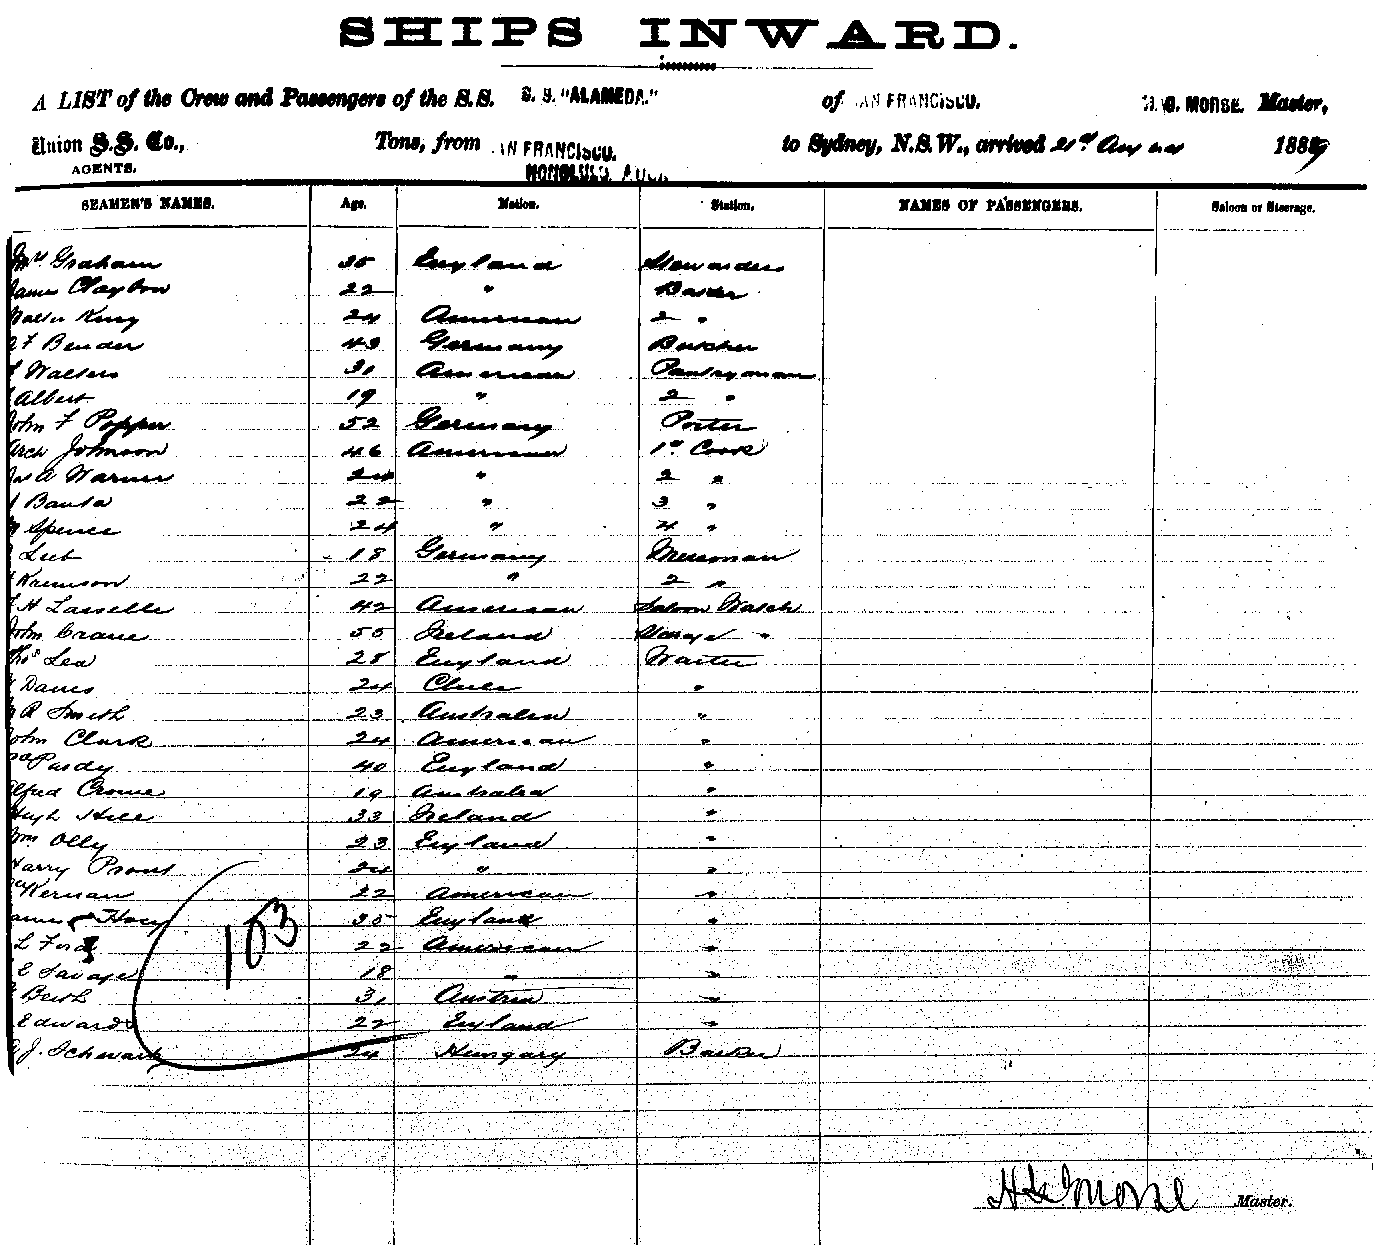 SHIPS INWARD.
A LIST of the Crew and Passengers of the S.S. S. S. "ALAMEDA." of AN FRANCISCO. MORSE. Master,
Union S.S. Co., Tons, from AN FRANCISCO. to Sydney, N.S.W., arrived 21st August 1889
AGENTS. HONOLULU,
SEAMEN'S NAMES. Age. Nation. Station. NAMES OF PASSENGERS. Saloon or Steerage.
Mrs Graham 35 England Stewardess
James Clayton 22 "
Walter King 24 American 2 "
F Bender 43 Germany Butcher
Walters 31 American Pantryman
Albert 19 " 2 "
John F Popper 52 Germany Porter
Arch Johnson 46 American 1st Cook
A Warner 24 " 2 "
Banta 22 " 3 "
Spence 24 " 4 "
18 Germany Messman
22 " 2 "
H Lasselle 42 American Saloon Watch
John Crane 55 Ireland "
Thos Lea 28 England Waiter
24 Chile "
R Smith 23 Australia "
John Clark 24 American "
Purdy 40 England "
Alfred Crowe 19 Australia "
Hugh Hill 33 Ireland "
Wm Olly 23 England "
Harry Prout 24 " "
McKernan 22 American "
James Hoey 35 England "
L Ford 22 American "
E Savage 18 " "
31 Austria "
Edwards 22 England "
J. Schwark 24 Hungary Barber
103
Morse Master.